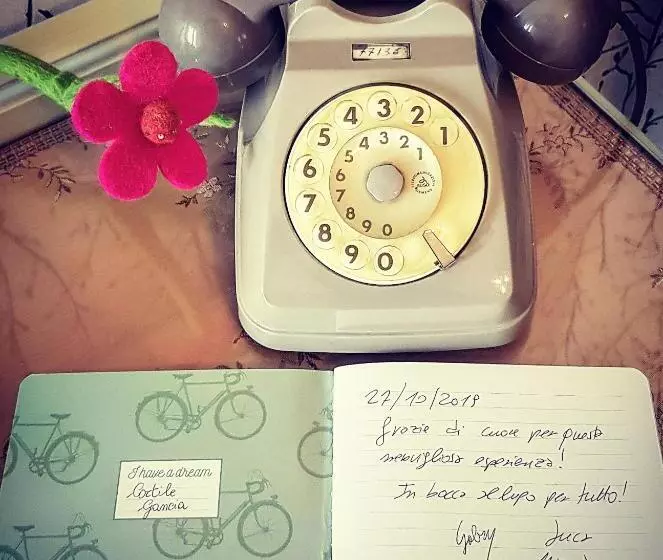 77136
1 2 3 4 5 6 7 8 9 0
1 2 3 4 5 6 7 8 9 0
SIEMENS
I have a dream
Cortile
Gancia
27/10/2019
Grazie di cuore per questa
meravigliosa esperienza!
In bocca al lupo per tutto!
Gabry Luca